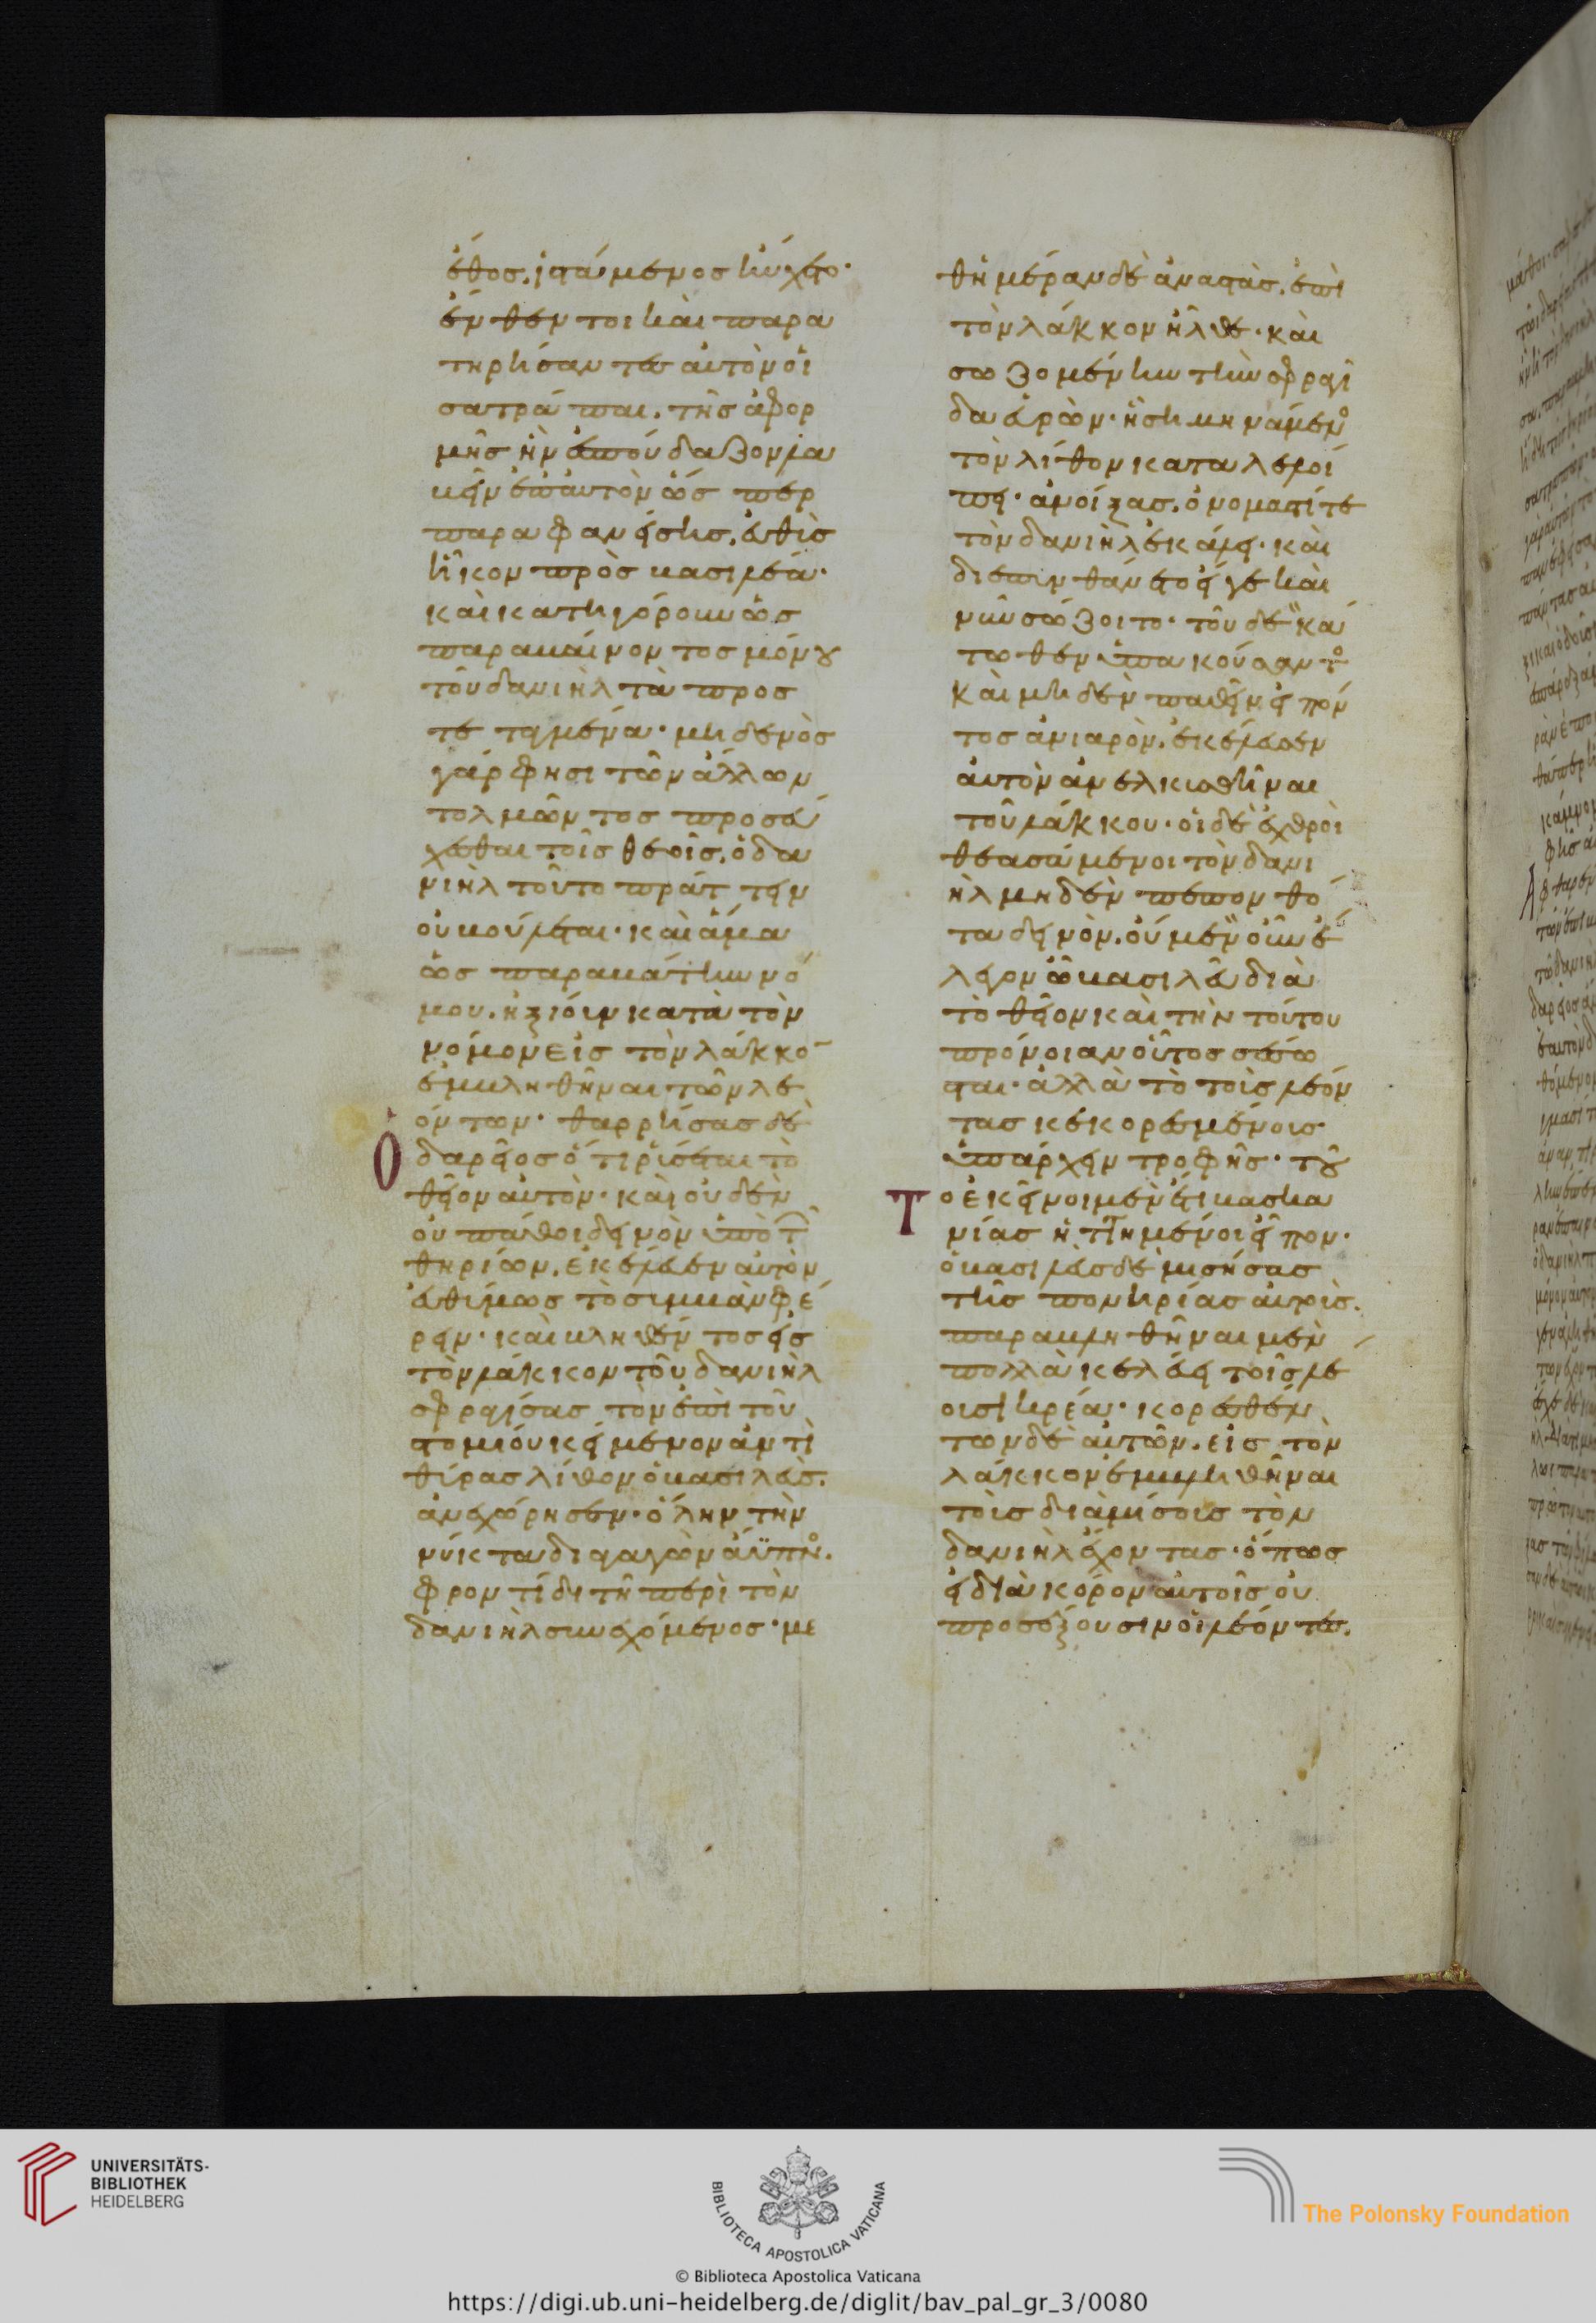 ἔθος. ἱστάμενος ηὔχετο·
ἔνθέν τοι καὶ παρα
τηρήσαντες αὐτὸν οἱ
σατράπαι. τῆς ἀφορ
μῆς ἣν ἐσπούδαζον λα
βεῖν ἐπ' αὐτὸν ὥσπερ
παραφανείσης. εὐθὺς
ἧκον πρὸς βασιλέα·
καὶ κατηγόρουν ὡς
παραβαίνοντος μόνου
τοῦ δανιὴλ τὰ προσ
τεταγμένα· μηδενὸς
γάρ φησι τῶν ἄλλων
τολμῶντος προσεύ
χεσθαι τοῖς θεοῖς. ὁ δα
νιὴλ τοῦτο πράττειν
οὐ βούλεται· καὶ ἅμα
ὡς παραβάτην νό
μου. ἠξίουν κατὰ τὸν
νόμον εἰς τὸν λάκκο̅
ἐμβληθῆναι τῶν λε
όντων· θαρρήσας δὲ
Ὁ δαρεῖος ὅτι ῥύσεται τὸ
θεῖον αὐτὸν· καὶ οὐδὲν
οὐ πάθοι δεινὸν ὑπὸ τ
θηρίων. ἐκέλευσεν αὐτὸν
εὐθύμως τὸ συμβὰν φέ
ρειν· καὶ βληθέντος εἰς
τὸν λάκκον τοῦ δανιὴλ
σφραγίσας τὸν ἐπὶ τοῦ
στομίου κείμενον ἀντὶ
θύρας λίθον ὁ βασιλεὺς.
ἀνεχώρησεν· ὅλην τὴν
νύκτα διαγαγὼν ἄϋπνο.
φροντίδι τῇ περὶ τὸν
δανιὴλ συνεχόμενος· με
θημέραν δὲ ἀναστὰς. ἐπὶ
τὸν λάκκον ἦλθε· καὶ
σωζομένην τὴν σφραγῖ
δα εὑρὼν· ᾗ σημηνάμενο
τὸν λίθον καταλελοί
πει· ἀνοίξας. ὀνομαστί τε
τὸν δανιὴλ ἐκάλει· καὶ
διεπυνθάνετο εἴγε καὶ
νῦν σώζοιτο· τοῦ δὲ κά
τωθεν ὑπακούσαντο
καὶ μηδὲν παθεῖν εἰπόν
τος ἀνιαρὸν. ἐκέλευσεν
αὐτὸν ἀνελκυσθῆναι
τοῦ λάκκου· οἱ δὲ ἐχθροὶ
θεασάμενοι τὸν δανι
ὴλ μηδὲν πεπονθό
τα δεινὸν. οὐ μὲν οὖν ἔ
λεγον ὦ βασιλεῦ διὰ
τὸ θεῖον καὶ τὴν τούτου
πρόνοιαν οὗτος σέσω
σται· ἀλλὰ τὸ τοὺς λέον
τας κεκορεσμένους
ὑπάρχειν τροφῆς· τοῦ
Το ἐκεῖνοι μὲν ἔτι βασκα
νίας ἡττημένοι εἶπον·
ὁ βασιλεὺς δὲ μισήσας
τῆς πονηρίας αὐτοὺς.
παραβληθῆναι μὲν
πολλὰ κελεύει τοῖς λέ
ουσι κρέα· κορεσθέν
των δὲ αὐτῶν. εἰς τὸν
λάκκον ἐμβληθῆναι
τοὺς διὰ μίσους τὸν
δανιὴλ ἔχοντας· ὅπως
εἰ διὰ κόρον αὐτοῖς οὐ
προσάξουσιν οἱ λέοντες.
UNIVERSITÄTS-
BIBLIOTHEK
HEIDELBERG
BIBLIOTECA APOSTOLICA VATICANA
The Polonsky Foundation
© Biblioteca Apostolica Vaticana
https://digi.ub.uni-heidelberg.de/diglit/bav_pal_gr_3/0080